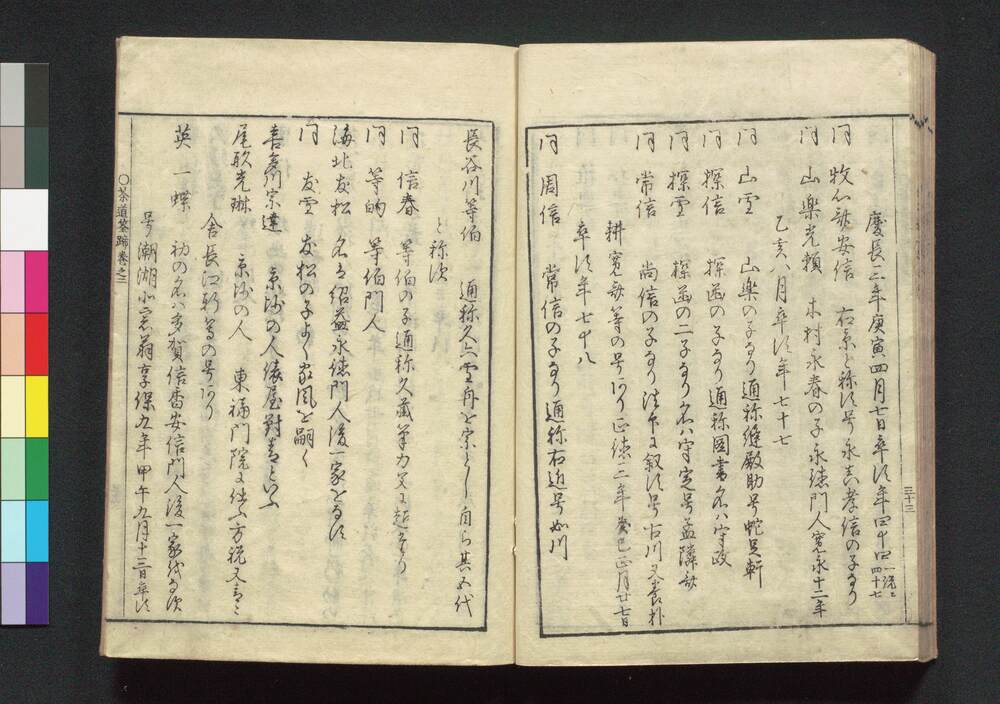 慶長三年庚寅四月七日卒す年四十四一説ニ四十七
同　牧心斎安信　右京と称す号永真孝信の子なり
同　山楽光頼　木村永春の子永徳門人寛永十二年
乙亥八月卒す年七十七
同　山雪　山楽の子なり通称縫殿助号蛇足軒
同　探信　探幽の子なり通称図書名ハ守政
同　探雪　探幽の二子なり名ハ守定号孟隣斎
同　常信　尚信の子なり法印に叙す号古川又養朴
耕寛斎等の号あり正徳三年癸巳正月廿七日
卒す年七十八
同　周信　常信の子なり通称右近号如川
三十三
長谷川等伯　通称久六雪舟を宗とし自ら其五代
と称す
同　信春　等伯の子通称久蔵筆力父に超たり
同　等的　等伯門人
海北友松　名は紹益永徳門人後一家をなす
同　友雪　友松の子よく家風を嗣く
喜多川宗達　京師の人俵屋対青といふ
尾形光琳　京師の人　東福門院に仕ふ方祝又青々
舎長江軒等の号あり
英　一蝶　初の名ハ多賀信香安信門人後一家代なす
号潮湖北窓翁享保九年甲午九月十三日卒す
〇茶道筌蹄巻之三